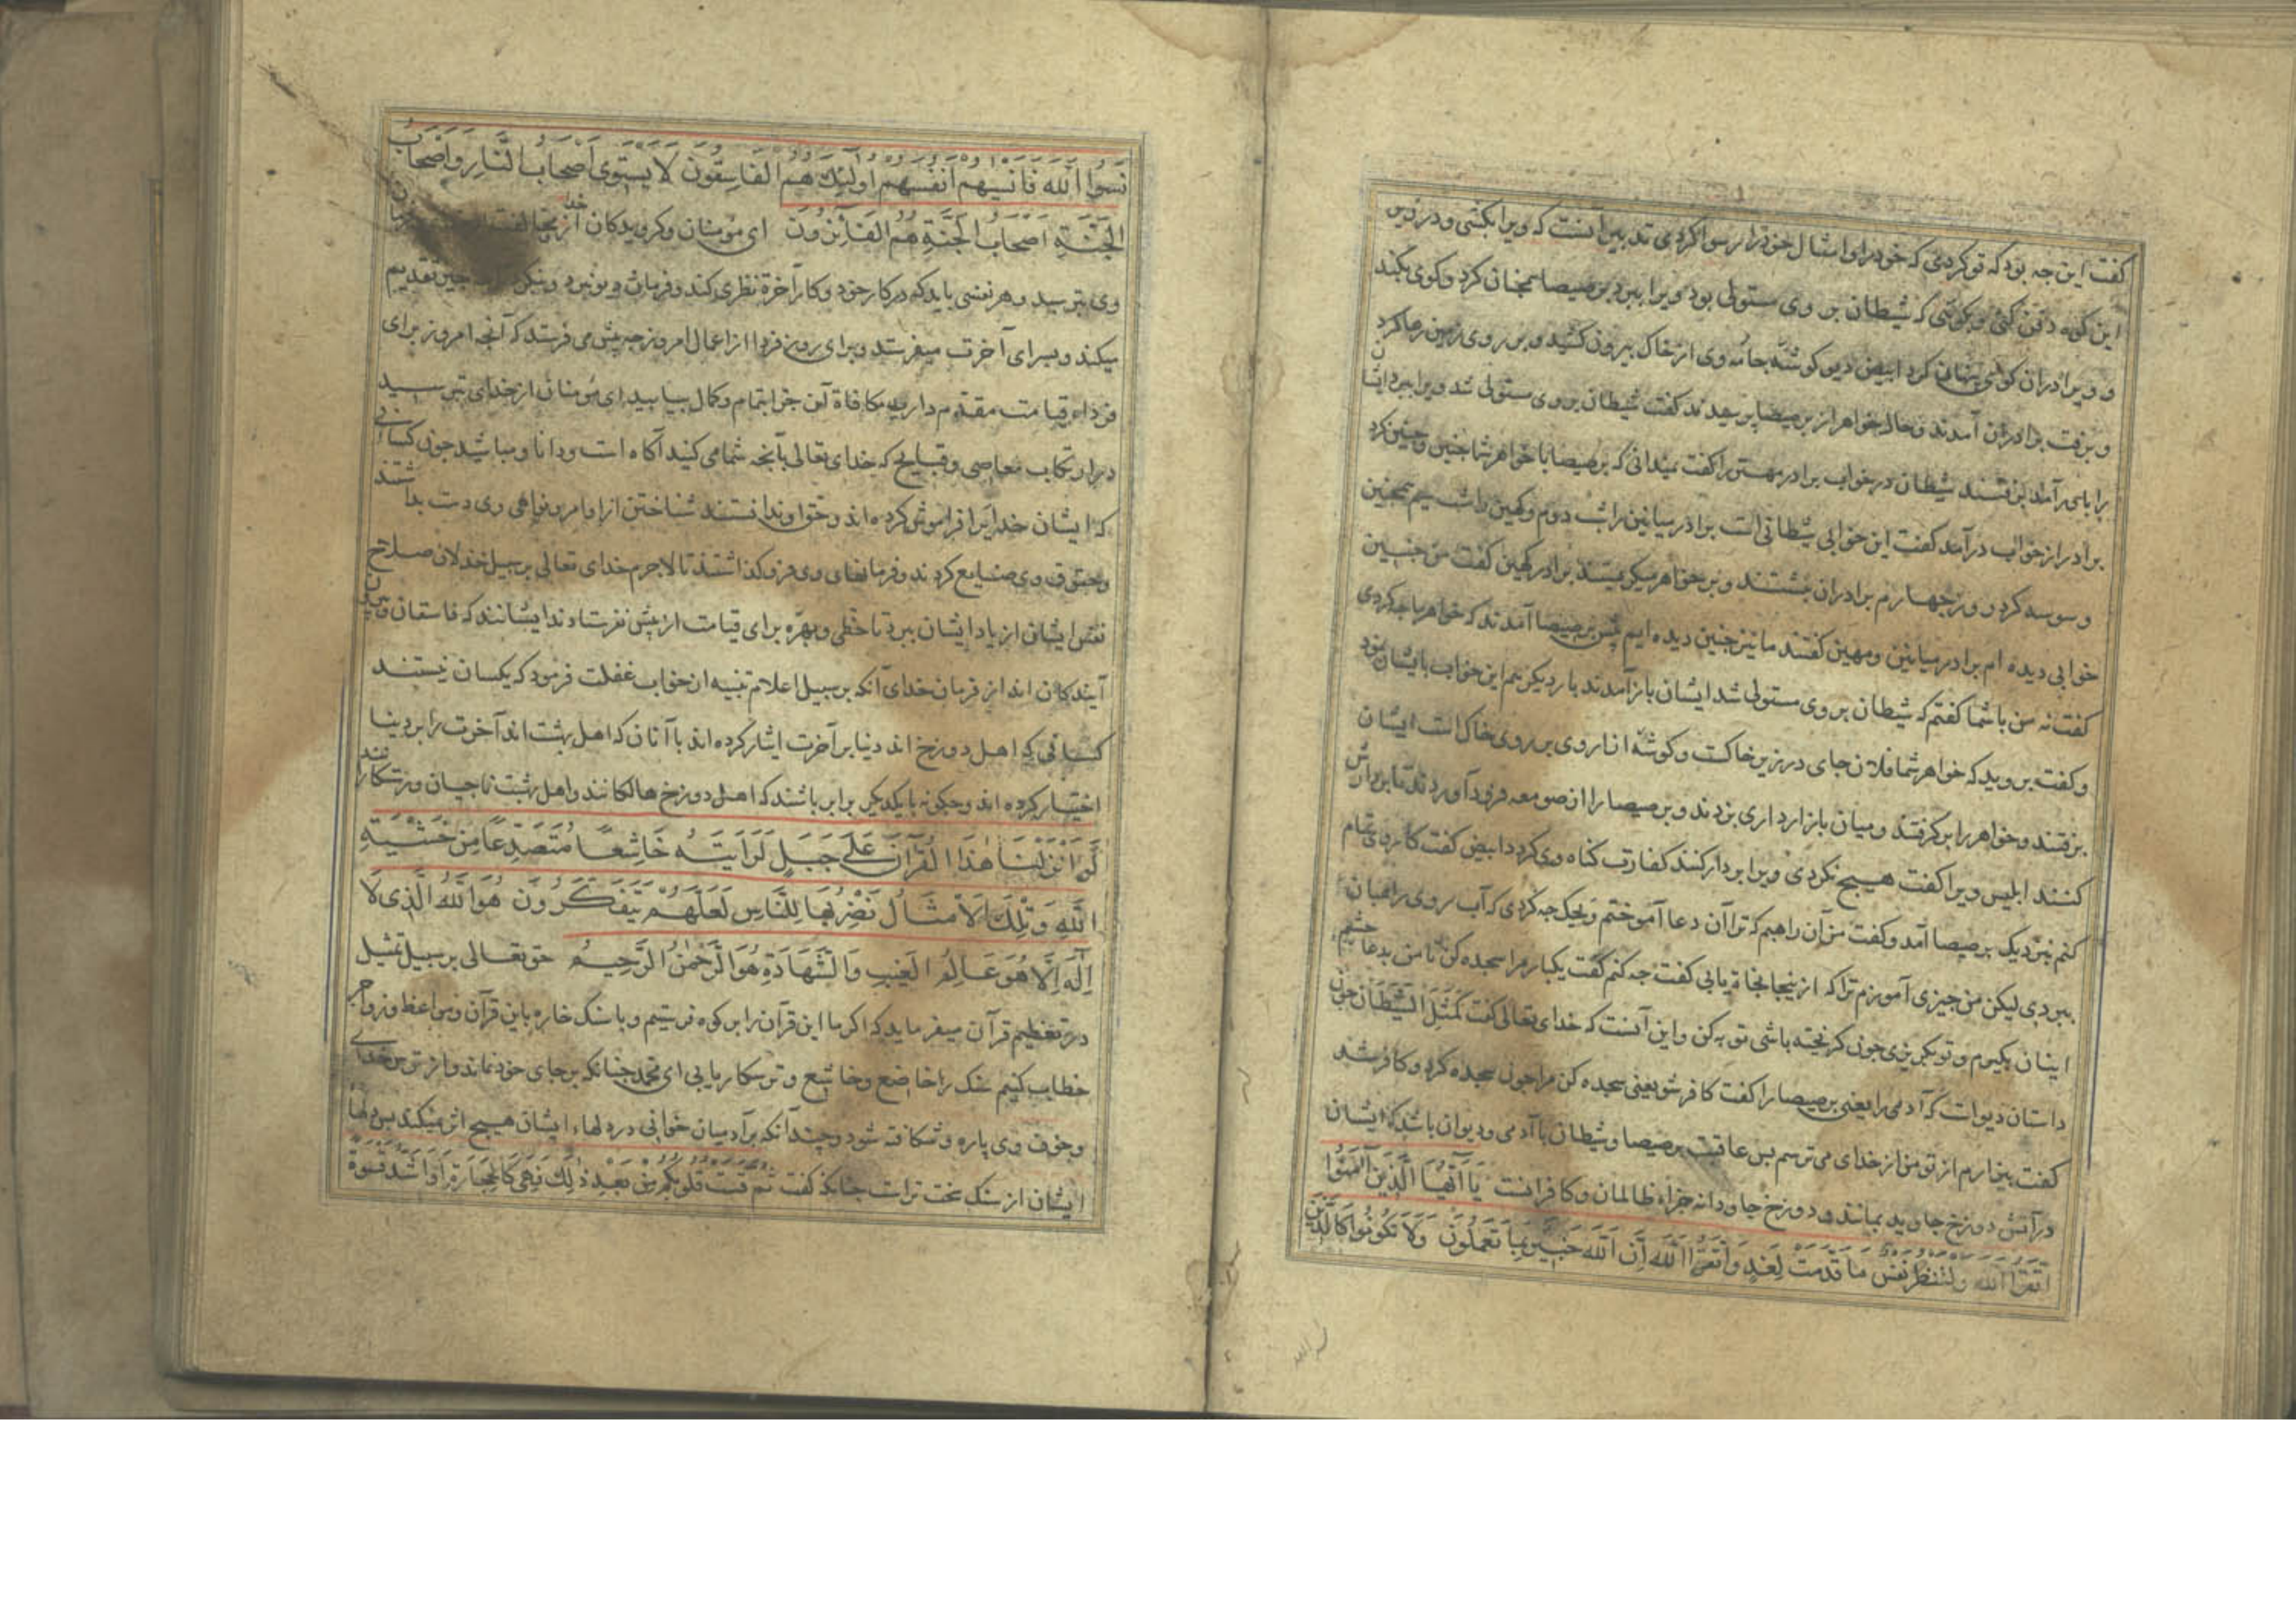 گفت این چه بود که تو کردی که خود را و امثال خود را رسوا کردی تدبیر آنست که ویرا بکشی و در زیر
این کوه دفن کنی و بکوئی که شیطان بر وی مستولی بود ویرا ببرد برصیصا همچنان کرد و کوی بکند
و ویرا دران کوی پنهان کرد ابیض دیو کوشه جامه وی از خاک بیرون کشید و بر روی زمین رها کرد
و برفت برادران آمدند و حال خواهر از برصیصا پرسیدند گفت شیطان بر وی مستولی شد ویرا ببرد ایشان
را باور آمد برفتند شیطان در خواب برادر مهترین را گفت میدانی که برصیصا با خواهر شما چنین و چنین کرد
برادر از خواب درآمد گفت این خوابی شیطانی است برادر میانین را شب دوم و کهین را شب سیم همچنین
وسوسه کرد روز چهارم برادران بنشستند و بر خواهر میکریستند برادر کهین گفت من چنین
خوابی دیده ام برادر میانین و مهین گفتند ما نیز چنین دیده ایم پس بر برصیصا آمدند که خواهر ما چه کردی
گفت نه من با شما گفتم که شیطان بر وی مستولی شد ایشان باز آمدند بار دیکر هم این خواب با ایشان نمود
و گفت بروید که خواهر شما فلان جای در زیر خاکست و کوشه ازار وی بر روی خاک است ایشان
برفتند و خواهر را برکرفتند و میان بازار داری بزدند و برصیصا را از صومعه فرود آوردند تا بر دارش
کنند ابلیس ویرا گفت هیچ نکردی ویرا بر دار کنند کفارت کناه وی کردد ابیض گفت کار وی تمام
کنم نزدیک برصیصا آمد و گفت من آن راهبم که ترا آن دعا آموختم ویحک چه کردی که آب روی راهبان
ببردی لیکن من چیزی آموزم ترا که از ینجا نجاة یابی گفت چه کنم گفت یکبار مرا سجده کن تا من بدعا چشم
اینان بگیرم و تو بگریزی چون گریخته باشی توبه کن و این آنست که خدای تعالی گفت كَمَثَلِ الشَّيْطَانِ چون
داستان دیو است که آدمی را یعنی برصیصا را گفت کافر شو یعنی سجده کن مرا چون سجده کرد و کافر شد
گفت بیزارم از تو من از خدای می ترسم پس عاقبت برصیصا و شیطان با آدمی و دیوان باشد که ایشان
در آتش دوزخ جاوید بمانند و دوزخ جاودانه جزاء ظالمان و کافرانست يَا أَيُّهَا الَّذِينَ آمَنُوا
اتَّقُوا اللَّهَ وَلْتَنظُرْ نَفْسٌ مَا قَدَّمَتْ لِغَدٍ وَاتَّقُوا اللَّهَ إِنَّ اللَّهَ خَبِيرٌ بِمَا تَعْمَلُونَ وَلَا تَكُونُوا كَالَّذِينَ
نَسُوا اللَّهَ فَأَنْسَيهُمْ أَنْفُسَهُمْ أُولَئِكَ هُمُ الْفَاسِقُونَ لَا يَسْتَوِي أَصْحَابُ النَّارِ وَأَصْحَابُ
الْجَنَّةِ أَصْحَابُ الْجَنَّةِ هُمُ الْفَائِزُونَ ای مومنان و کرویدکان از مخالفت
وی بترسید و هر نفسی باید که در کار خود و کار آخرة نظری کند و فرمان وی برد و بنکرد چه تقدیم
میکند و برای آخرت میفرستد و برای روز فردا از اعمال امروز چه پیش می فرستد که آنچه امروز برای
فرداء قیامت مقدم دارید مکافاة آن جزا بتمام و کمال بیابید ای مومنان از خدای بترسید
در ارتکاب معاصی و قبایح که خدای تعالی بآنچه شما می کنید آکاه است و دانا و مباشید چون کسانی
که ایشان خدایرا فراموش کرده اند و حق او ندانستند شناختن از اوامر و نواهی وی دست بداشتند
و حقوق وی ضایع کردند و فرمانهای وی فرو گذاشتند تا لاجرم خدای تعالی بر سبیل خذلان صلاح
نفس ایشان از یاد ایشان ببرد تا حظی و بهره برای قیامت از پیش نفرستادند ایشانند که فاسقان و بیرون
آیندکان اند از فرمان خدای آنکه بر سبیل اعلام و تنبیه از خواب غفلت فرمود که یکسان نیستند
کسانی که اهل دوزخ اند دنیا بر آخرت ایثار کرده اند با آنان که اهل بهشت اند آخرت را بر دنیا
اختیار کرده اند و چگونه با یکدیکر برابر باشند که اهل دوزخ هالکانند و اهل بهشت ناجیان و رستکارانند
لَوْ أَنْزَلْنَا هَذَا الْقُرْآنَ عَلَى جَبَلٍ لَرَأَيْتَهُ خَاشِعًا مُتَصَدِّعًا مِنْ خَشْيَةِ
اللَّهِ وَتِلْكَ الْأَمْثَالُ نَضْرِبُهَا لِلنَّاسِ لَعَلَّهُمْ يَتَفَكَّرُونَ هُوَ اللَّهُ الَّذِي لَا
إِلَهَ إِلَّا هُوَ عَالِمُ الْغَيْبِ وَالشَّهَادَةِ هُوَ الرَّحْمَنُ الرَّحِيمُ حق تعالی بر سبیل تمثیل
در تعظیم قرآن میفرماید که اکر ما این قرآن را بر کوه فرستیم و با سنک خاره باین قرآن و مواعظ و زواجر
خطاب کنیم سنک را خاضع و خاشع و ترسکار یابی ای محمد چنانکه بر جای خود نماند و از ترس خدای
و خوف وی پاره و شکافته شود و چندآنکه بر آدمیان خوانی در دلهاء ایشان هیچ اثر نمیکند پس دلها
ایشان از سنک سخت تر است چنانکه گفت ثُمَّ قَسَتْ قُلُوبُكُمْ مِنْ بَعْدِ ذَلِكَ فَهِيَ كَالْحِجَارَةِ أَوْ أَشَدُّ قَسْوَةً